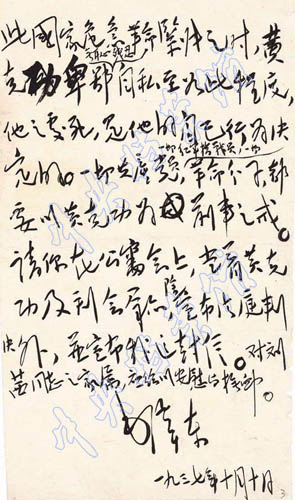 此國家危急革命緊張之时,黄
克功卑鄙无耻残忍自私至如此程度,
他之處死,是他的自己行为决
定的。一切共產党員,一切红軍指战员,一切革命分子,都
要以黄克功为前車之戒。
请你在公審会上,当着黄克
功及到会群众,除宣布法庭判
决外,並宣布我这封信。对刘
茜同志之家属,应给以安慰与撫卹。
毛泽东
一九三七年十月十日
3